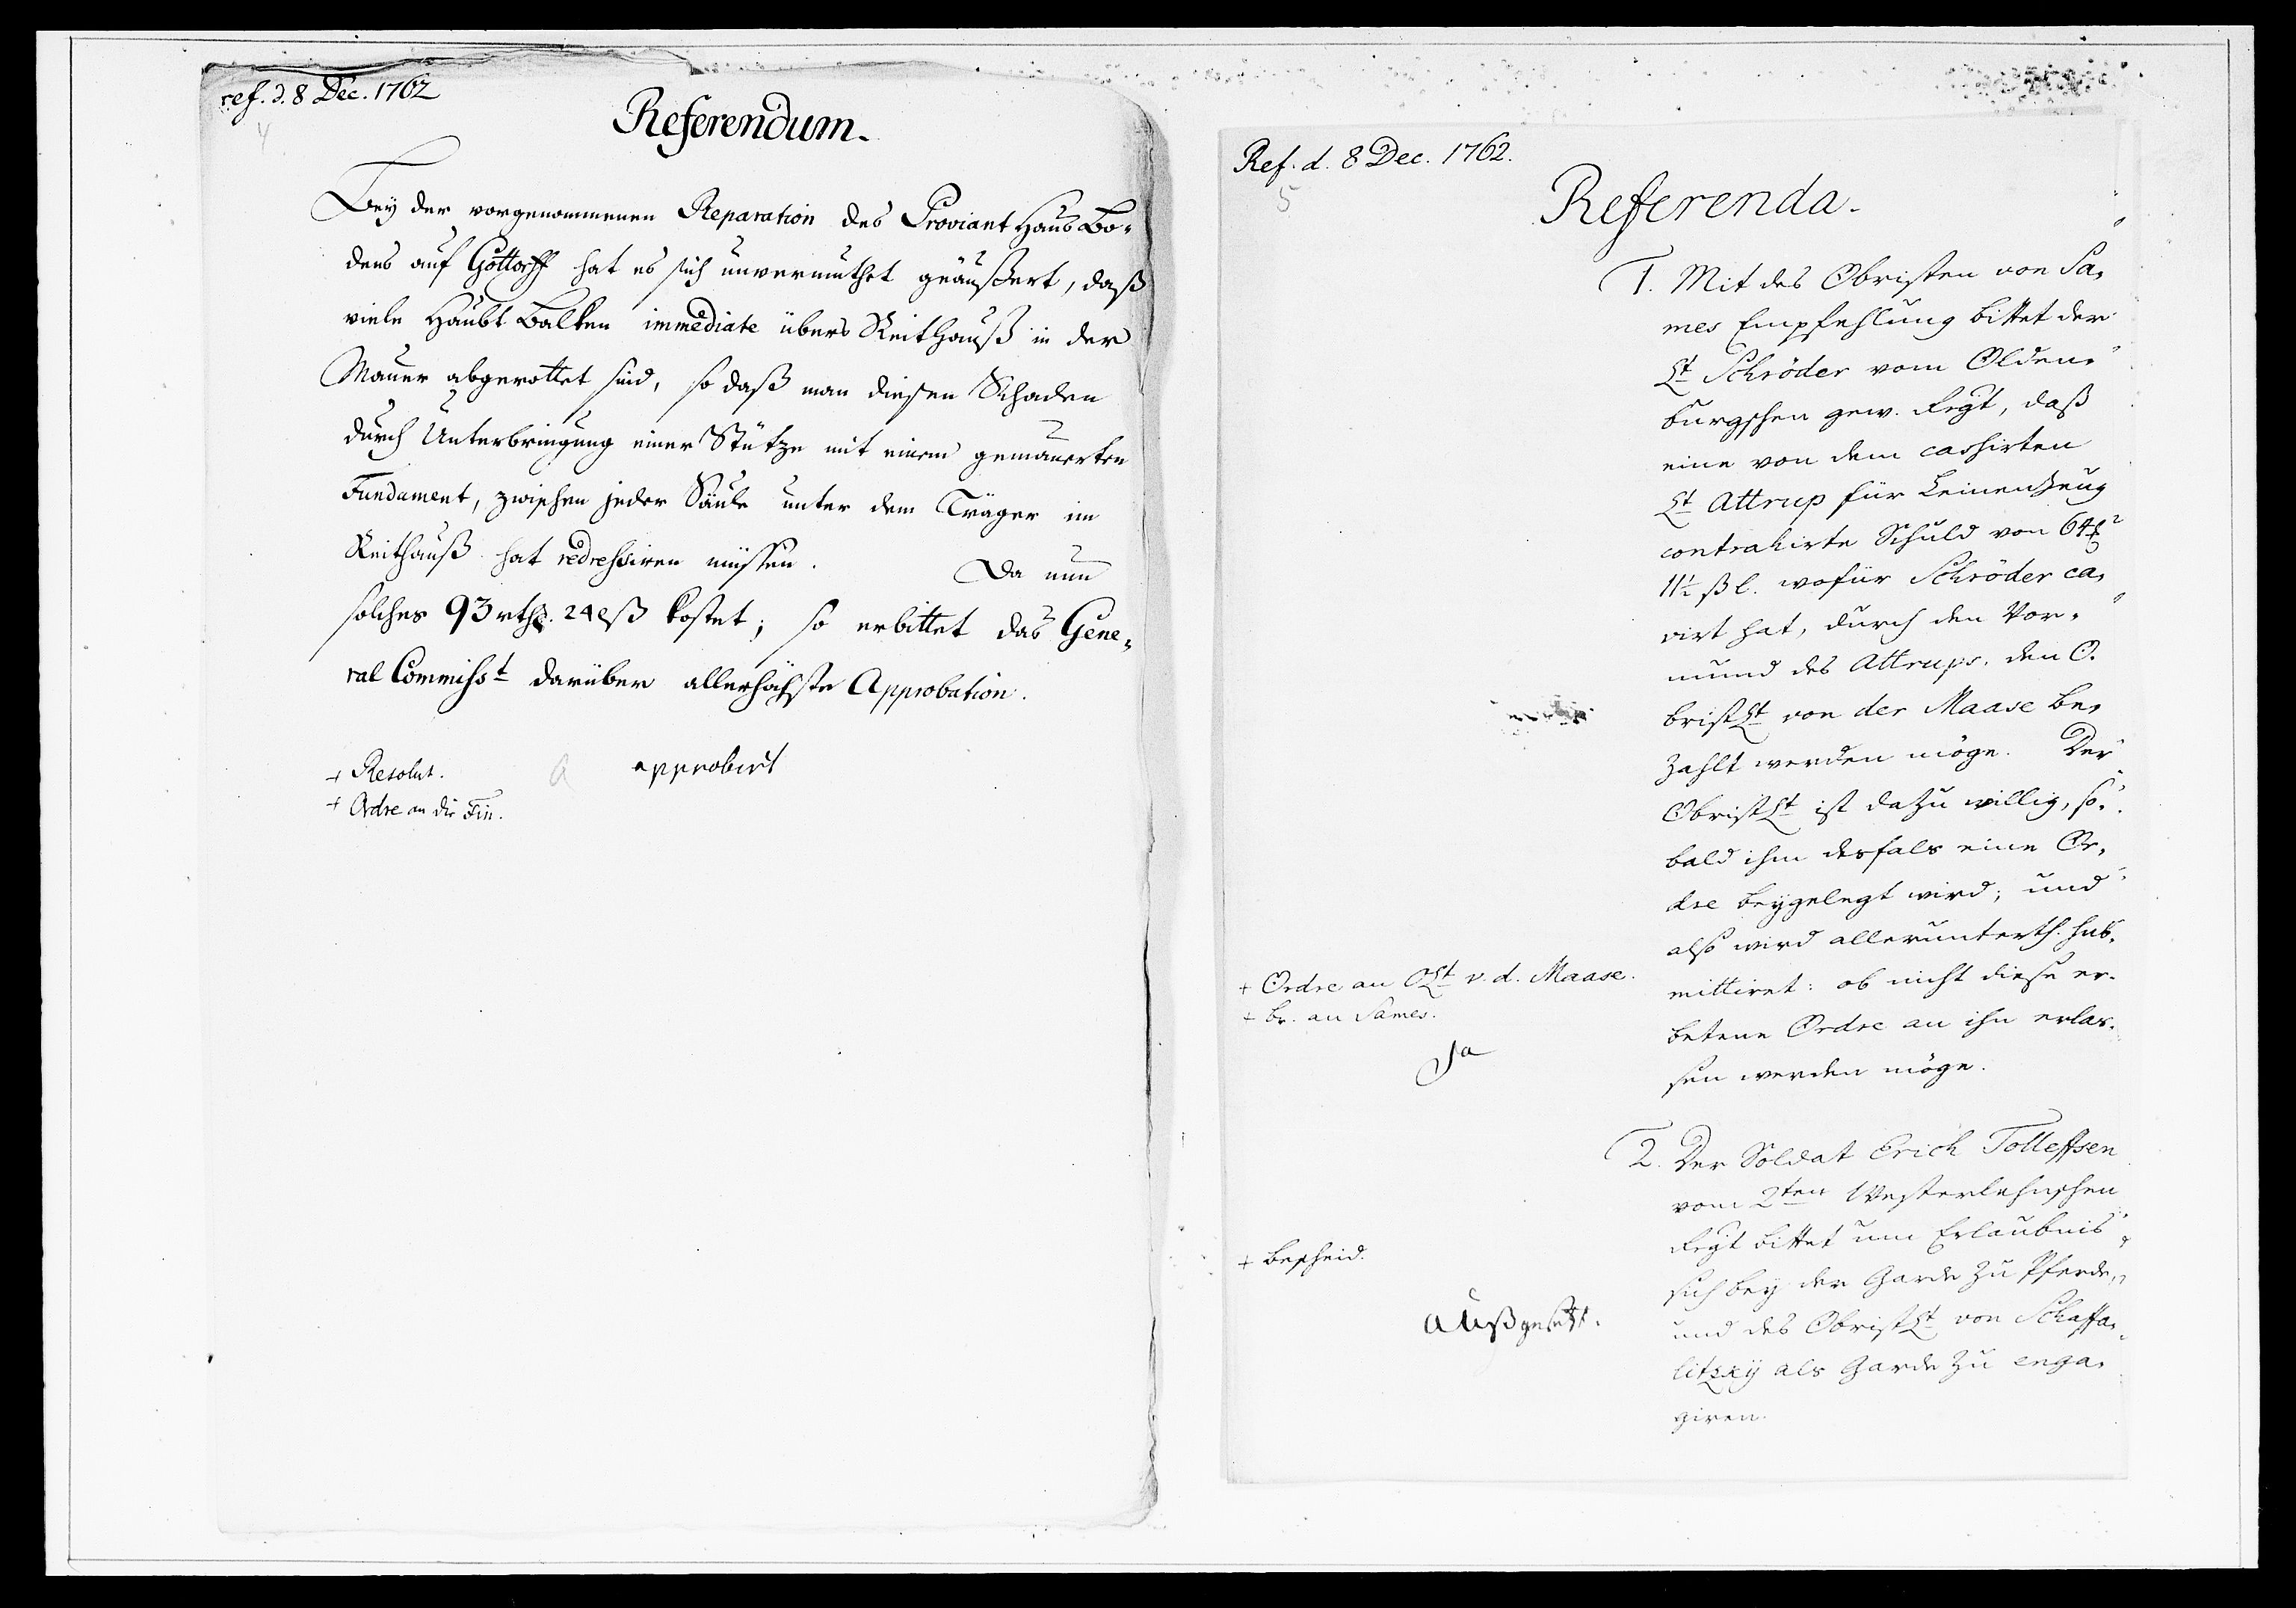 ref. d. 8 Dec. 1762
4
Referendum.
Bey der vorgenommenen Reparation des Proviant Haus Bo-
dens auf Gottorff hat es sich unvermuthet geäußert, daß
viele Haubt Balken immediate übers Reithauß in der
Mauer abgerottet sind, so daß man diesen Schaden
durch Unterbringung einer Stütze mit einem gemauerten
Fundament, zwischen jeder Säule unter dem Träger im
Reithauß hat redressiren müssen. Da nun
solches 93 rthlr. 24 ß kostet; so erbittet das Gene-
ral Commisst darüber allerhöchste Approbation.
+ Resolut. approbirt
+ Ordre an die Fin.
Ref. d. 8 Dec. 1762.
5
Referenda.
1. Mit des Obristen von Sa-
mes Empfehlung bittet der
Lt Schröder vom Olden-
burgschen gew. Regt, daß
eine von dem cassirten
Lt Attrup für Leinenzeug
contrahirte Schuld von 64
11½ ßl. wofür Schröder ca-
virt hat, durch den Vor-
mund des Attrups, den O-
bristLt von der Maase be-
zahlt werden möge. Der
ObristLt ist dazu willig, so-
bald ihm desfals eine Or-
dre beygelegt wird; und
also wird allerunterth. sub-
mittiret: ob nicht diese er-
betene Ordre an ihn erlas-
sen werden möge.
+ Ordre an OLt v. d. Maase.
+ br. an Sames.
Ja
2. Der Soldat Erich Tolleffsen
vom 2ten Westerlehnschen
Regt bittet um Erlaubnis
sich bey der Garde zu Pferde,
und des ObristLt von Schaffa-
litzky als Garde zu enga-
giren.
+ bescheid.
außgesetzt.